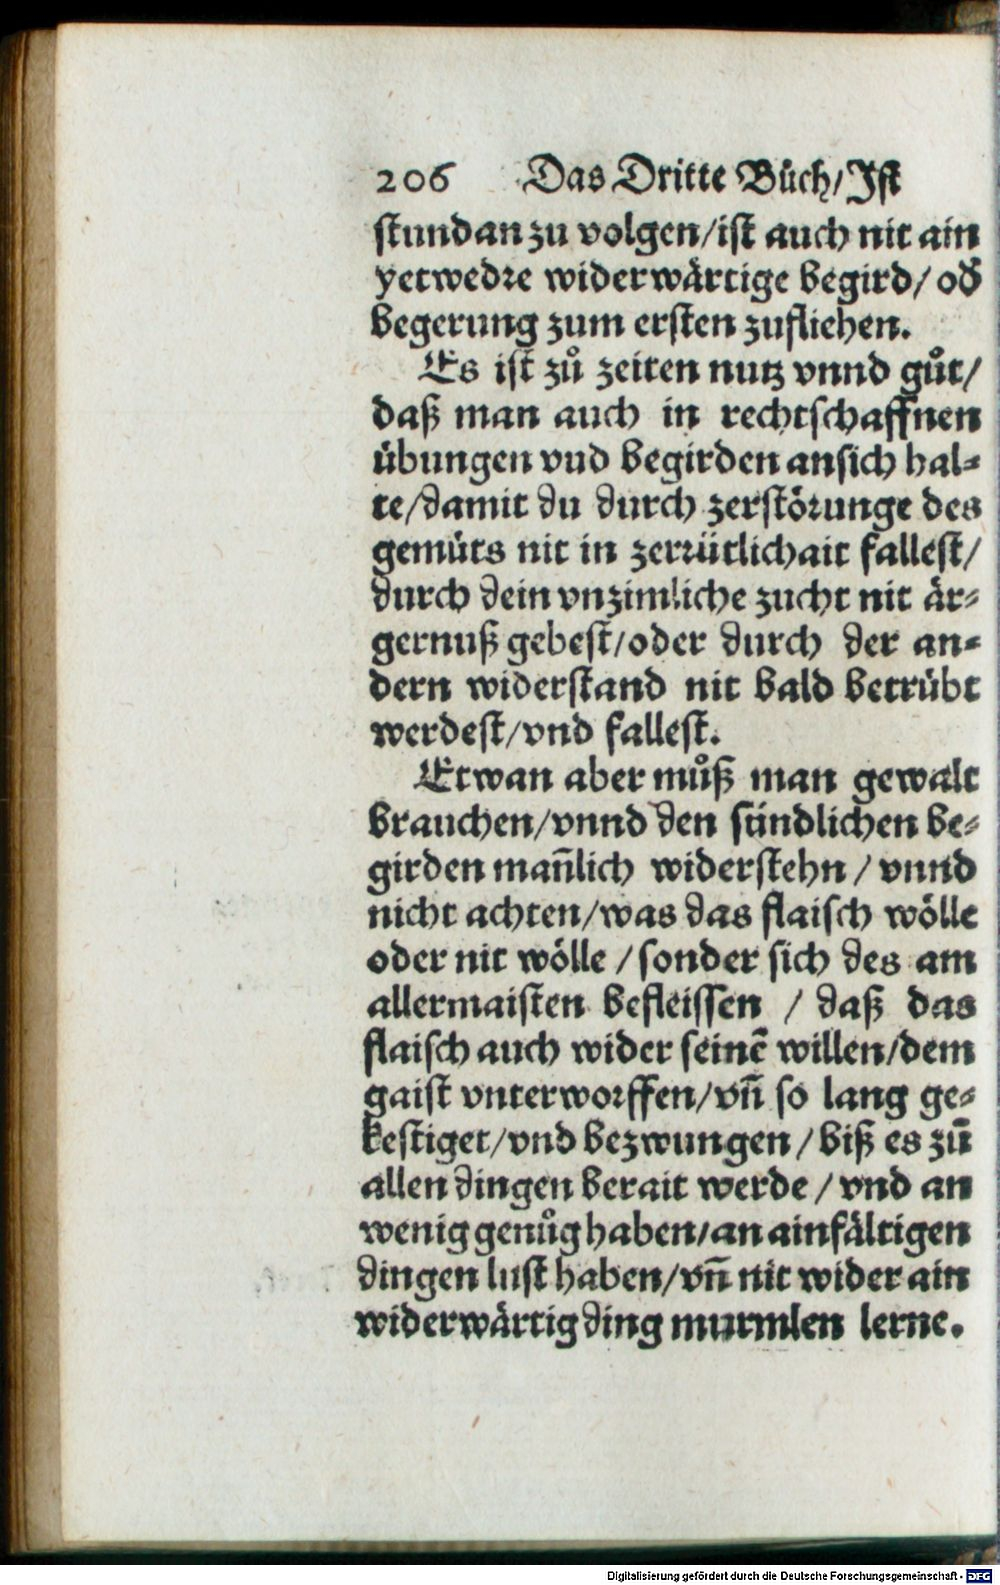 206 Das Dritte Bůch/ Ist
stund an zu volgen/ist auch nit ain
yetwedre widerwärtige begird/ oď
begerung zum ersten zufliehen.
Es ist zů zeiten nutz vnnd gůt/
daß man auch in rechtschaffnen
übungen vud begirden ansich hal⸗
te/damit du durch zerstörunge des
gemüts nit in zerrütlichait fallest/
durch dein vnzimliche zucht nit är⸗
gernuß gebest/oder durch der an⸗
dern widerstand nit bald betrübt
werdest/vnd fallest.
Etwan aber můß man gewalt
brauchen/vnnd den sündlichen be⸗
girden man̄lich widerstehn / vnnd
nicht achten/was das flaisch wölle
oder nit wölle / sonder sich des am
allermaisten befleissen / daß das
flaisch auch wider seinē willen/dem
gaist vnterworffen/vn̄ so lang ge⸗
kestiget/vnd bezwungen / biß es zū
allen dingen berait werde / vnd an
wenig genůg haben/an ainfältigen
dingen lust haben/vn̄ nit wider ain
widerwärtig ding murmlen lerne.
Digitalisierung gefördert durch die Deutsche Forschungsgemeinschaft - DFG